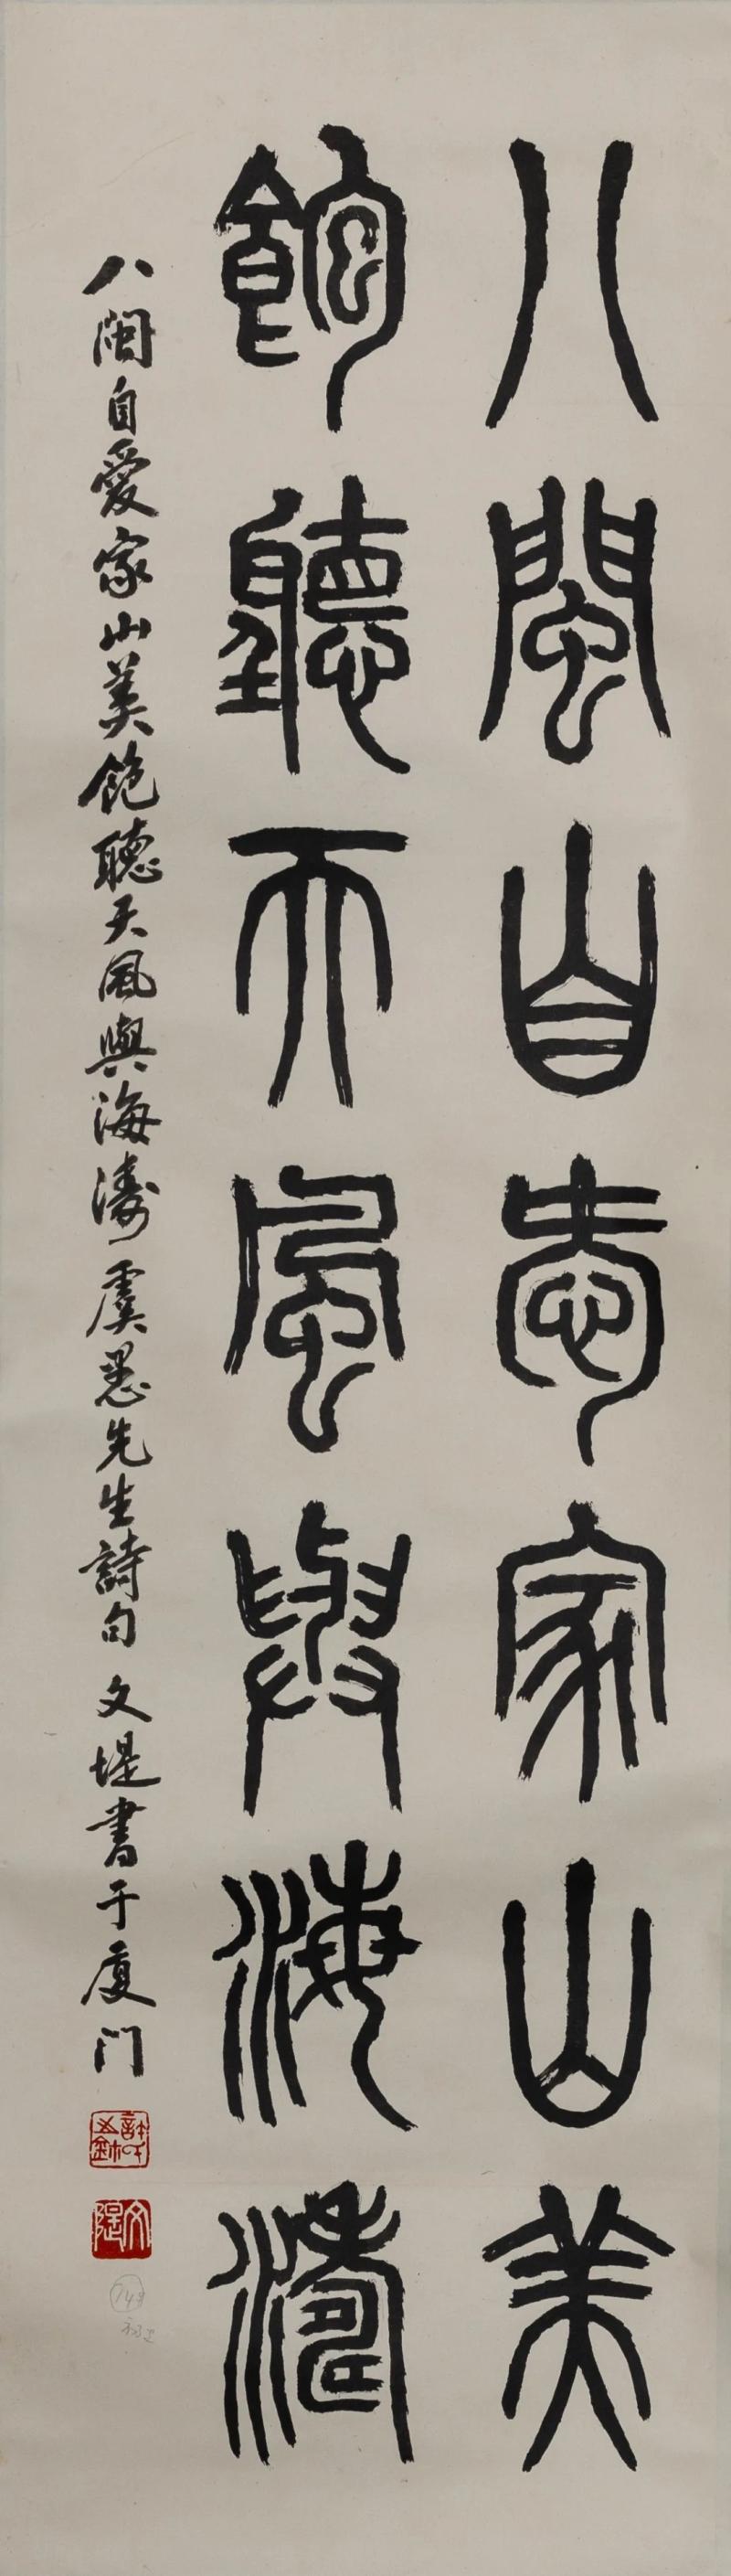 八閩自愛家山美
飽聽天風與海濤
八閩自愛家山美飽聽天風與海濤 虞愚先生詩句 文堤書于厦门
文堤